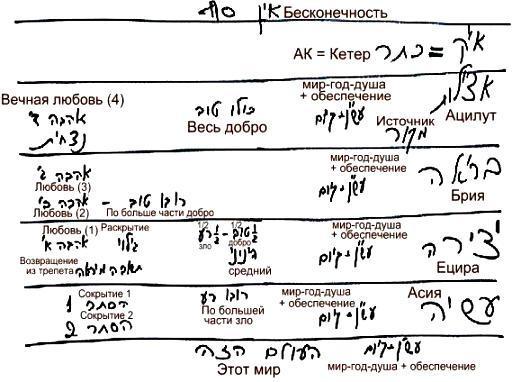 אין סוף Бесконечность
АК = Кетер כתר = א״ק
Вечная любовь (4) мир-год-душа
אהבה ד׳ כולו טוב + обеспечение אצילות
נצחית Весь добро עש״ן + קיום Источник Ацилут
מקור
אהבה ג׳ мир-год-душа
Любовь (3) + обеспечение בריאה
אהבה ב׳ - רובו טוב עש״ן + קיום
Любовь (2) По больше части добро Брия
Любовь (1) Раскрытие 1/2 1/2 мир-год-душа
אהבה א׳ גילוי зло добро + обеспечение יצירה
Возвращение בינוני עש״ן + קיום
из трепета תשובה מיראה средний Ецира
Сокрытие 1 רובו רע мир-год-душа Асия
1 הסתר По большей + обеспечение עשיה
Сокрытие 2 части зло עש״ן + קיום
2 הסתר
העולם הזה עש״ן + קיום
Этот мир мир-год-душа + обеспечение